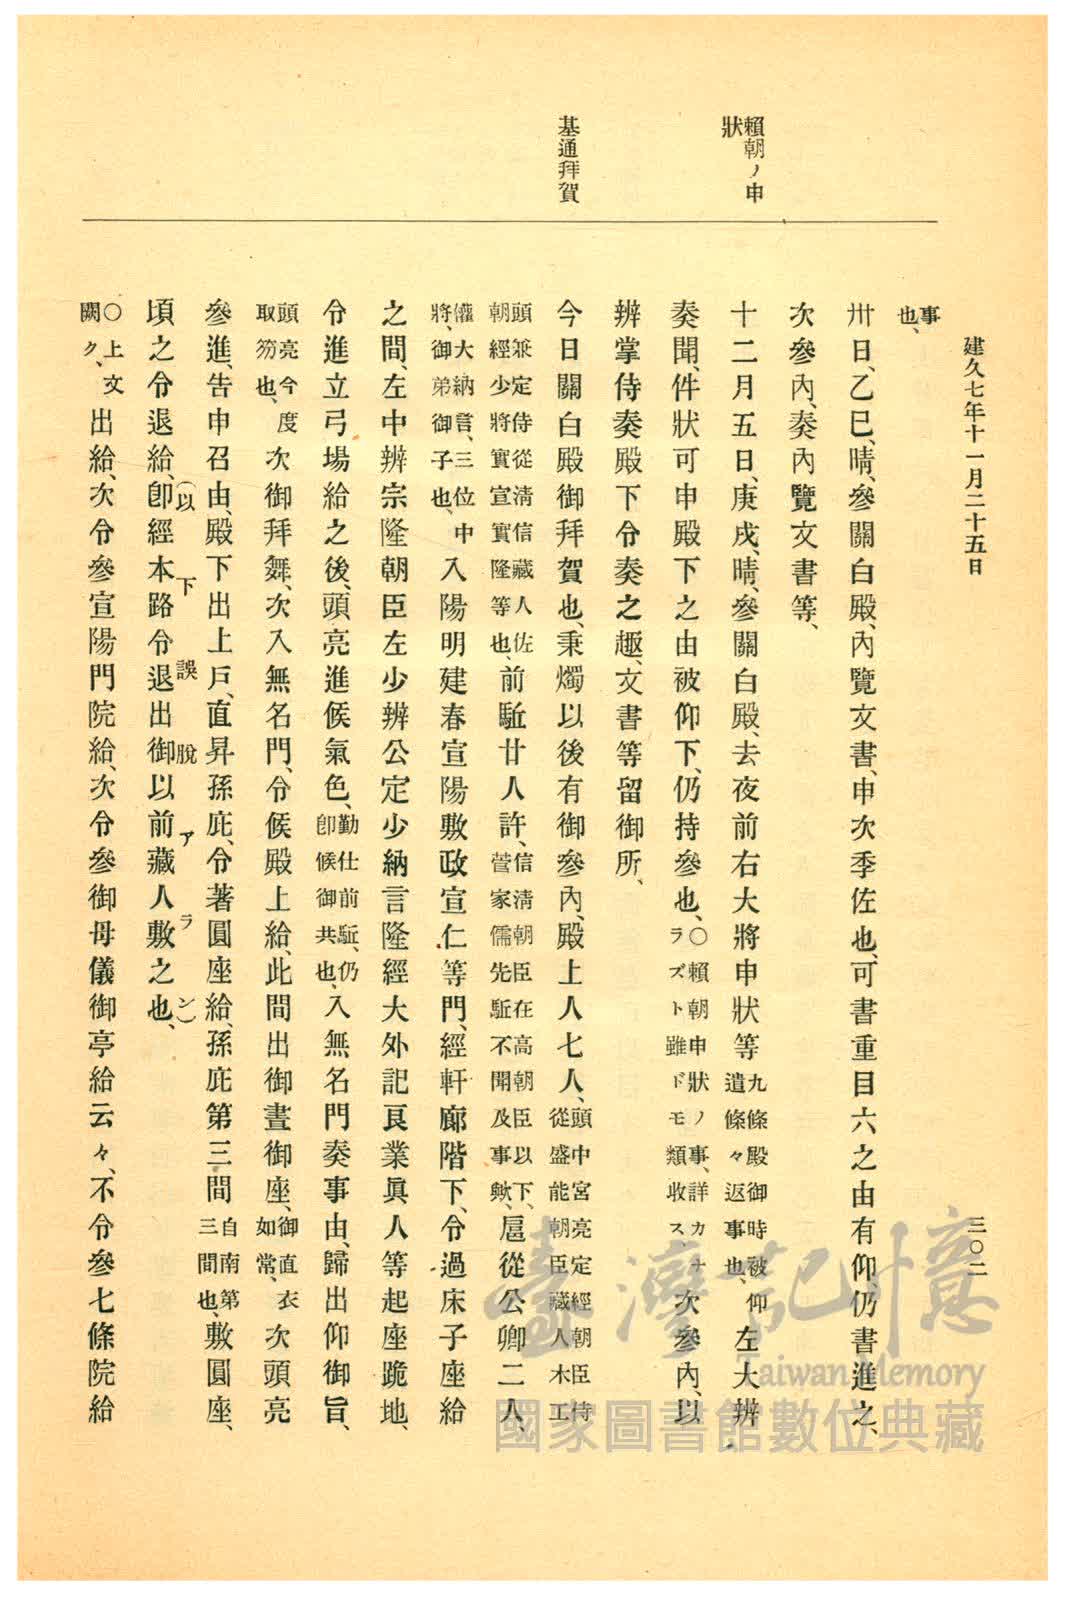 建久七年十一月二十五日
三〇二
賴朝ノ申
狀
基通拜賀
事
也、
卅日、乙巳、晴、參關白殿、內覽文書、申次季佐也、可書重目六之由有仰、仍書進之、
次參內、奏內覽文書等、
十二月五日、庚戌、晴、參關白殿、去夜前右大將申狀等九條殿御時被仰遣條々返事也、左大辨
奏聞、件狀可申殿下之由被仰下、仍持參也、〇賴朝申狀ノ事、詳カナラズト雖ドモ類收ス、次參內、以
辨掌侍奏殿下令奏之趣、文書等留御所、
今日關白殿御拜賀也、秉燭以後有御參內、殿上人七人、頭中宮亮定經朝臣侍從盛能朝臣藏人木工
頭兼定侍從清信藏人佐朝經少將實宣實隆等也、前駈廿人許、信清朝臣在高朝臣以下、菅家儒先駈不聞及事歟、扈從公卿二人、
權大納言、三位中將、御弟御子也、入陽明建春宣陽敷政宣仁等門、經軒廊階下、令過床子座給
之間、左中辨宗隆朝臣左少辨公定少納言隆經大外記良業眞人等起座跪地、
令進立弓場給之後、頭亮進候氣色、勤仕前駈、仍卽候御共也、入無名門奏事由、歸出仰御旨、
頭亮今度取笏也、次御拜舞、次入無名門、令候殿上給、此間出御晝御座、御直衣如常、次頭亮
參進、告申召由、殿下出上戶、直昇孫庇、令著圓座給、孫庇第三間自南第三間也、敷圓座、
頃之令退給、卽經本路令退出御以前藏人敷之也、(以下誤脫アラン)
〇上文闕ク、出給、次令參宣陽門院給、次令參御母儀御亭給云々、不令參七條院給
臺灣記憶
Taiwan Memory
國家圖書館數位典藏